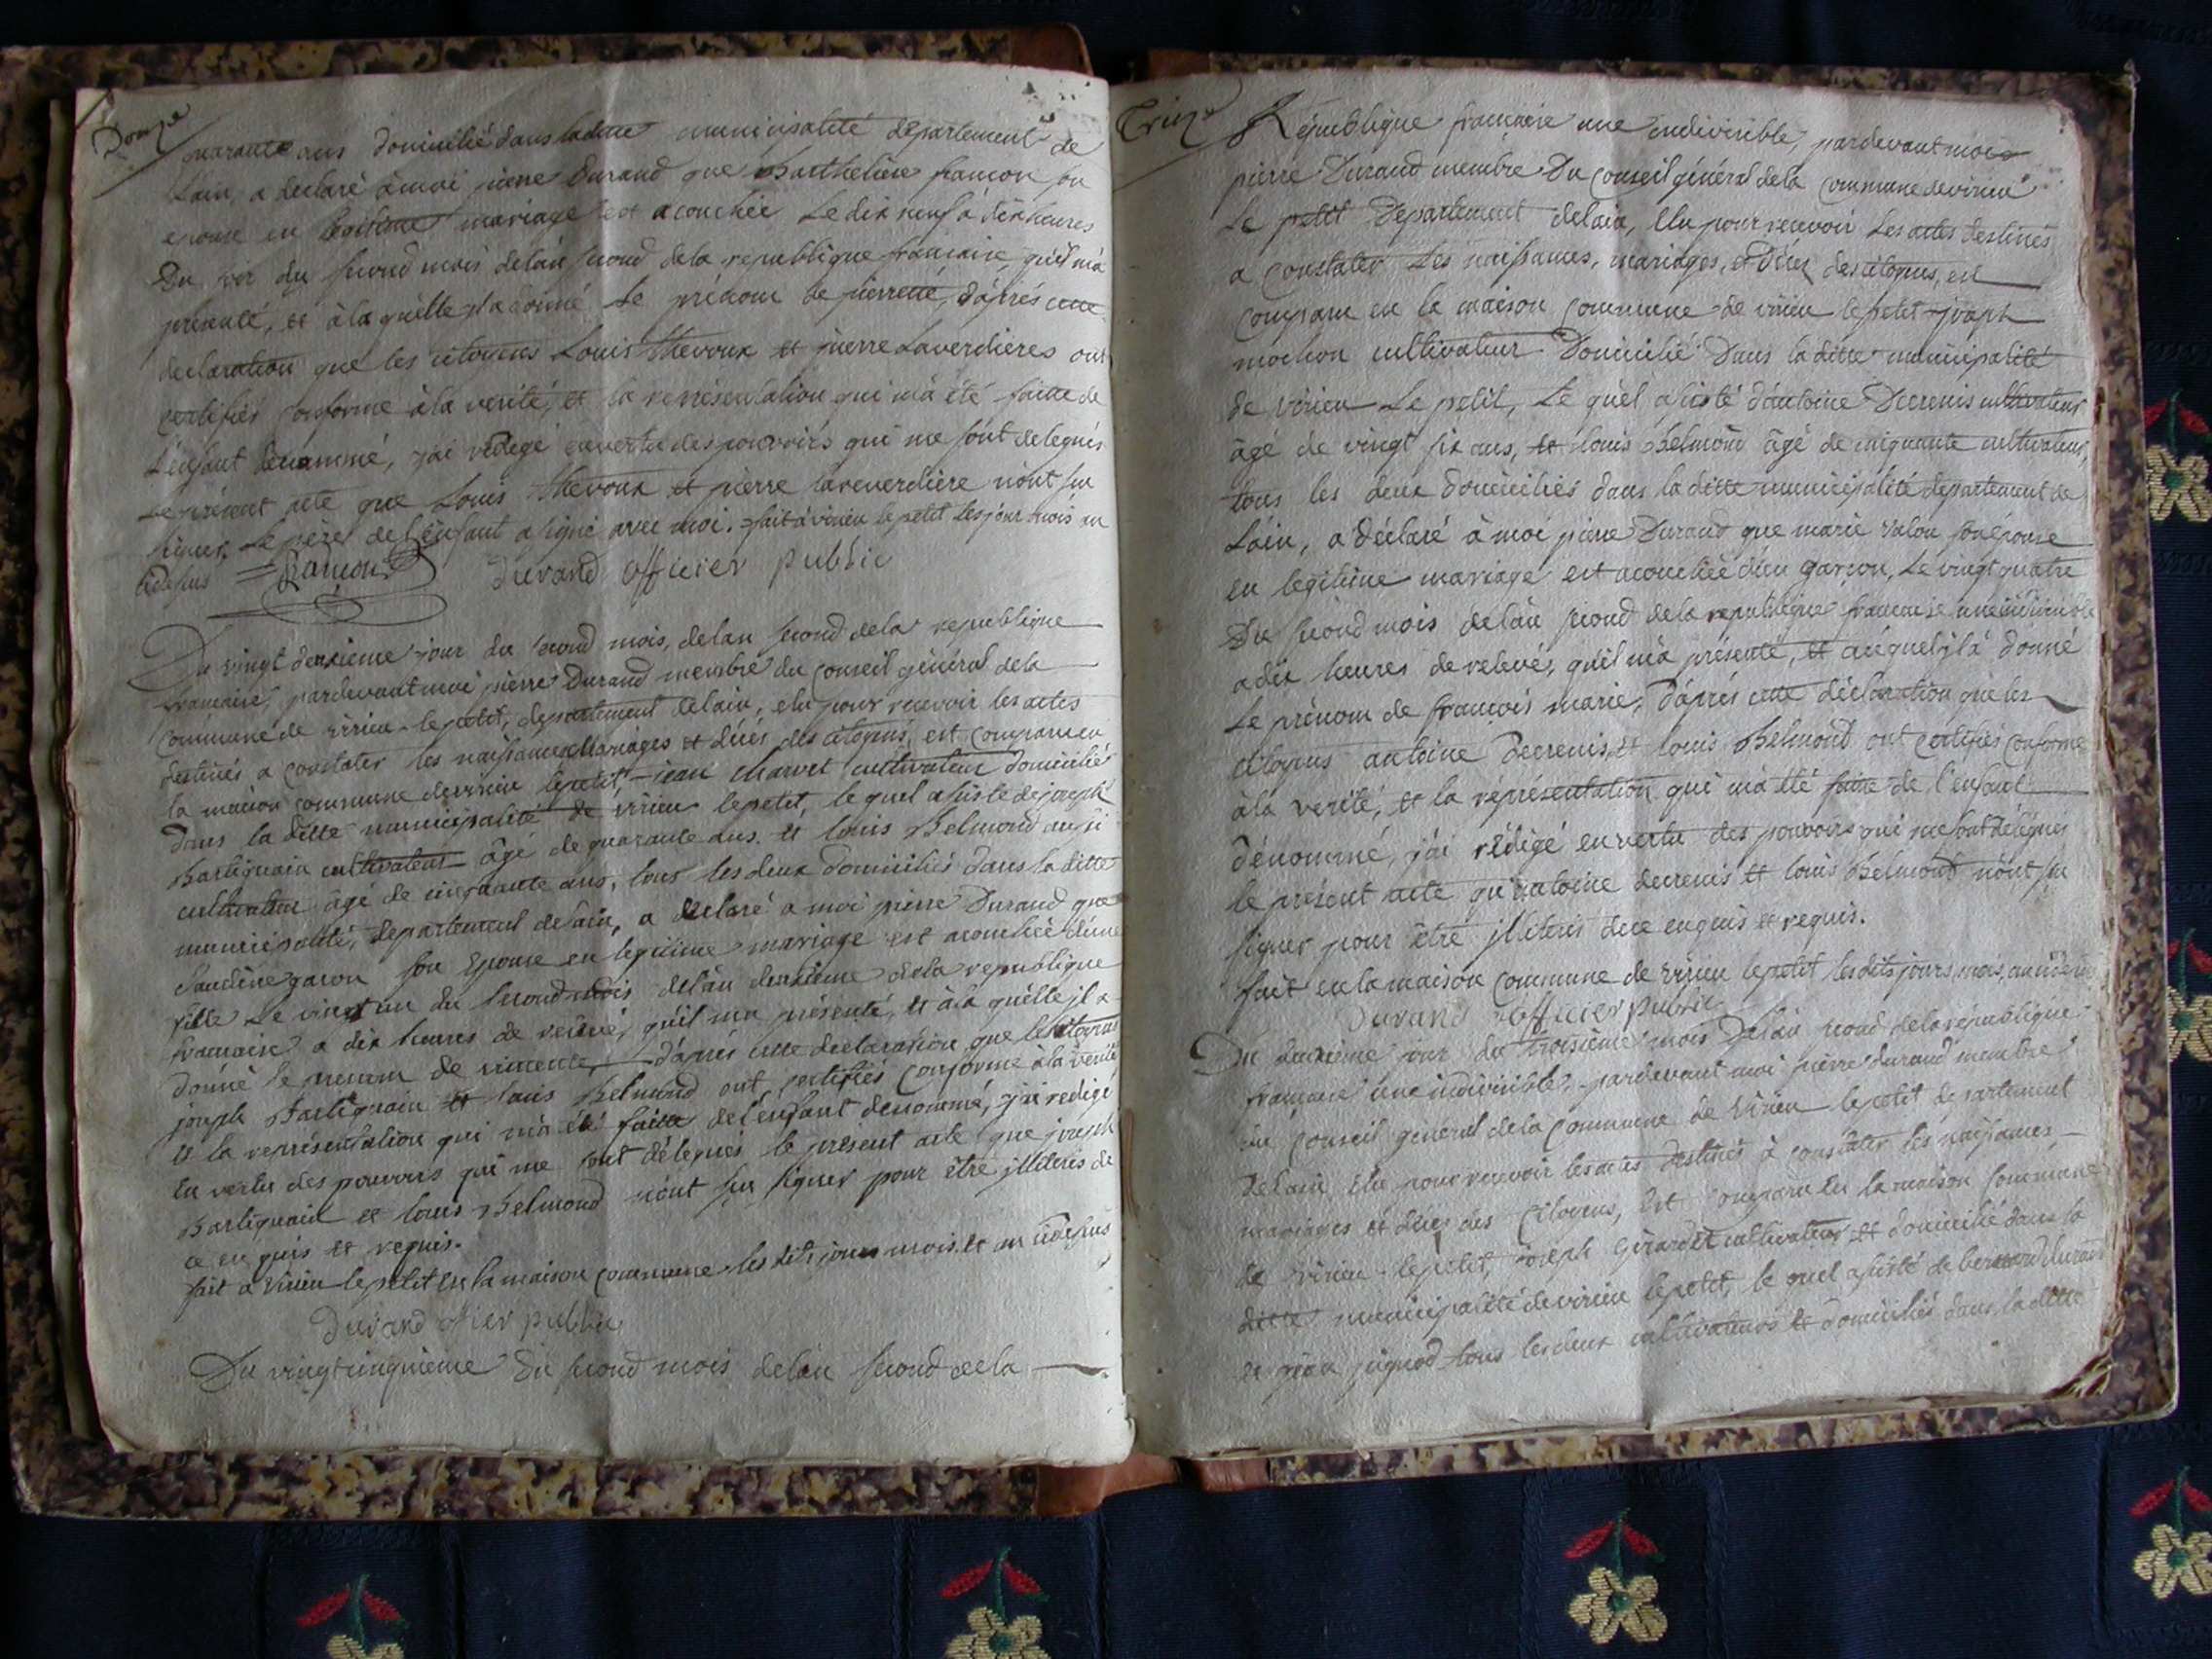 Douze
quarante ans domicilié dans la ditte municipalité departement de
Lain, a declaré à moi pierre Durand que Barthelière framon son
epouse en legitime mariage est acouchée Le dix neuf à dix heures
Du soir du second mois de lan second dela republique francaise, qu'il m'a
présenté, et à la quélle jl a donné Le prénom de pierrette, d'aprés cette
declaration que les citoyens Louis thevoux et pierre Laverdieres ont
certifiés conforme à la verité, et la representation qui m'a été faitte de
L'enfant dénommé, j'ai redigé en vertu des pouvoirs qui me sont delegués
Le présent acte que Louis thevoux et pierre lareverdiere n'ont su
signer, Le père de l'enfant a signé avec moi. fait à virieu le petit les jour mois an
cidessus Durand officier public
Du vingt deuxieme jour du second mois, delan second dela republique
francaise, pardevant moi pierre Durand membre du Conseil général dela
commune de virieu-le petit, departement delain, elu pour recevoir les actes
destinés a constater les naissances Mariages et décés des citoyens, est comparu en
la maison commune devirieu lepetit, jean charvet cultivateur domicilié
dans la ditte municipalité de virieu lepetit, le quel assisté de joseph
Bartignain cultivateur âgé de quarante ans. et louis Belmond aussi
cultivateur âgé de cinquante ans, tous les deux domiciliés dans la ditte
municipalité, departement delain, a declaré a moi pierre Durand que
claudine son Epouse en legitime mariage est acouchée d'une
fille Le vingt un du second mois delan deuxieme dela republique
francaise a dix heures de relevée, qu'il ma présenté, et à la quélle jl a
donné le prenom de vincente, d'aprés cette declaration que les citoyens
joseph Bartignain et louis Belmond ont certifiés conforme à la verité
et la représentation qui m'a été faitte de l'enfant denommé, j'ai redigé
En vertu des pouvoirs qui me sont délegués le présent acte que joseph
Bartignain et louis Belmond n'ont su signer pour être jlliterés de
ce enquis et requis.
fait a Virieu lepetit en la maison commune les dits jours mois et an cidessus
Durand officier public
Du vingtcinquieme Du second mois delan second dela
Treize
République francaise une indivisible, pardevant moi
pierre Durand membre Du Conseil général dela commune devirieu
Le petit Departement delain, Elu pour recevoir Les actes destinés
a constater Les naissances, mariages, et Décez des citoyens, est
comparu en la maison commune de virieu le petit joseph
mochon cultivateur Domicilié Dans la ditte municipalité
de virieu Le petit, Le quél assisté d'antoine Decrenis cultivateur
âgé de vingt six ans, et louis Belmond âgé de cinquante cultivateur,
tous les deux domiciliés dans la ditte municipalité departement de
Lain, a déclaré à moi pierre Durand que marie valon son épouse
en legitime mariage est acouchée d'un garçon, Le vingt quatre
Du second mois delan second dela republique francaise une indivisible
a dix heures de relevés, qu'il m'a présenté, et auquel jl à donné
Le prénom de francois marie, d'aprés cette déclaration que les
citoyens antoine Decrenis, et louis Belmond ont certifiés conforme
à la verité, et la réprésentation qui m'a été faitte de l'enfant
dénommé, j'ai rédigé en vertu des pouvoirs qui me sont délégués
le présent acte qu'antoine decrenis et louis Belmond n'ont su
signer pour être jlliterés dece enquis et requis.
fait en la maison commune de virieu lepetit les dits jours, mois, an cidessus
Durand officier public
Du deuxième jour du troisième mois Delan second dela république
francaise une indivisible, pardevant moi pierre durand membre
du Conseil général dela commune de Virieu lepetit departement
delain, Elu pour recevoir les actes destinés à constater les naissances
mariages et décez des Citoyens, Est comparu En la maison commune
de virieu-lepetit, joseph Girardet cultivateur et domicilié dans la
ditte municipalité devirieu lepetit, le quel assisté de bernard durand
et jiquod tous les deux cultivateurs et domiciliés dans la ditte